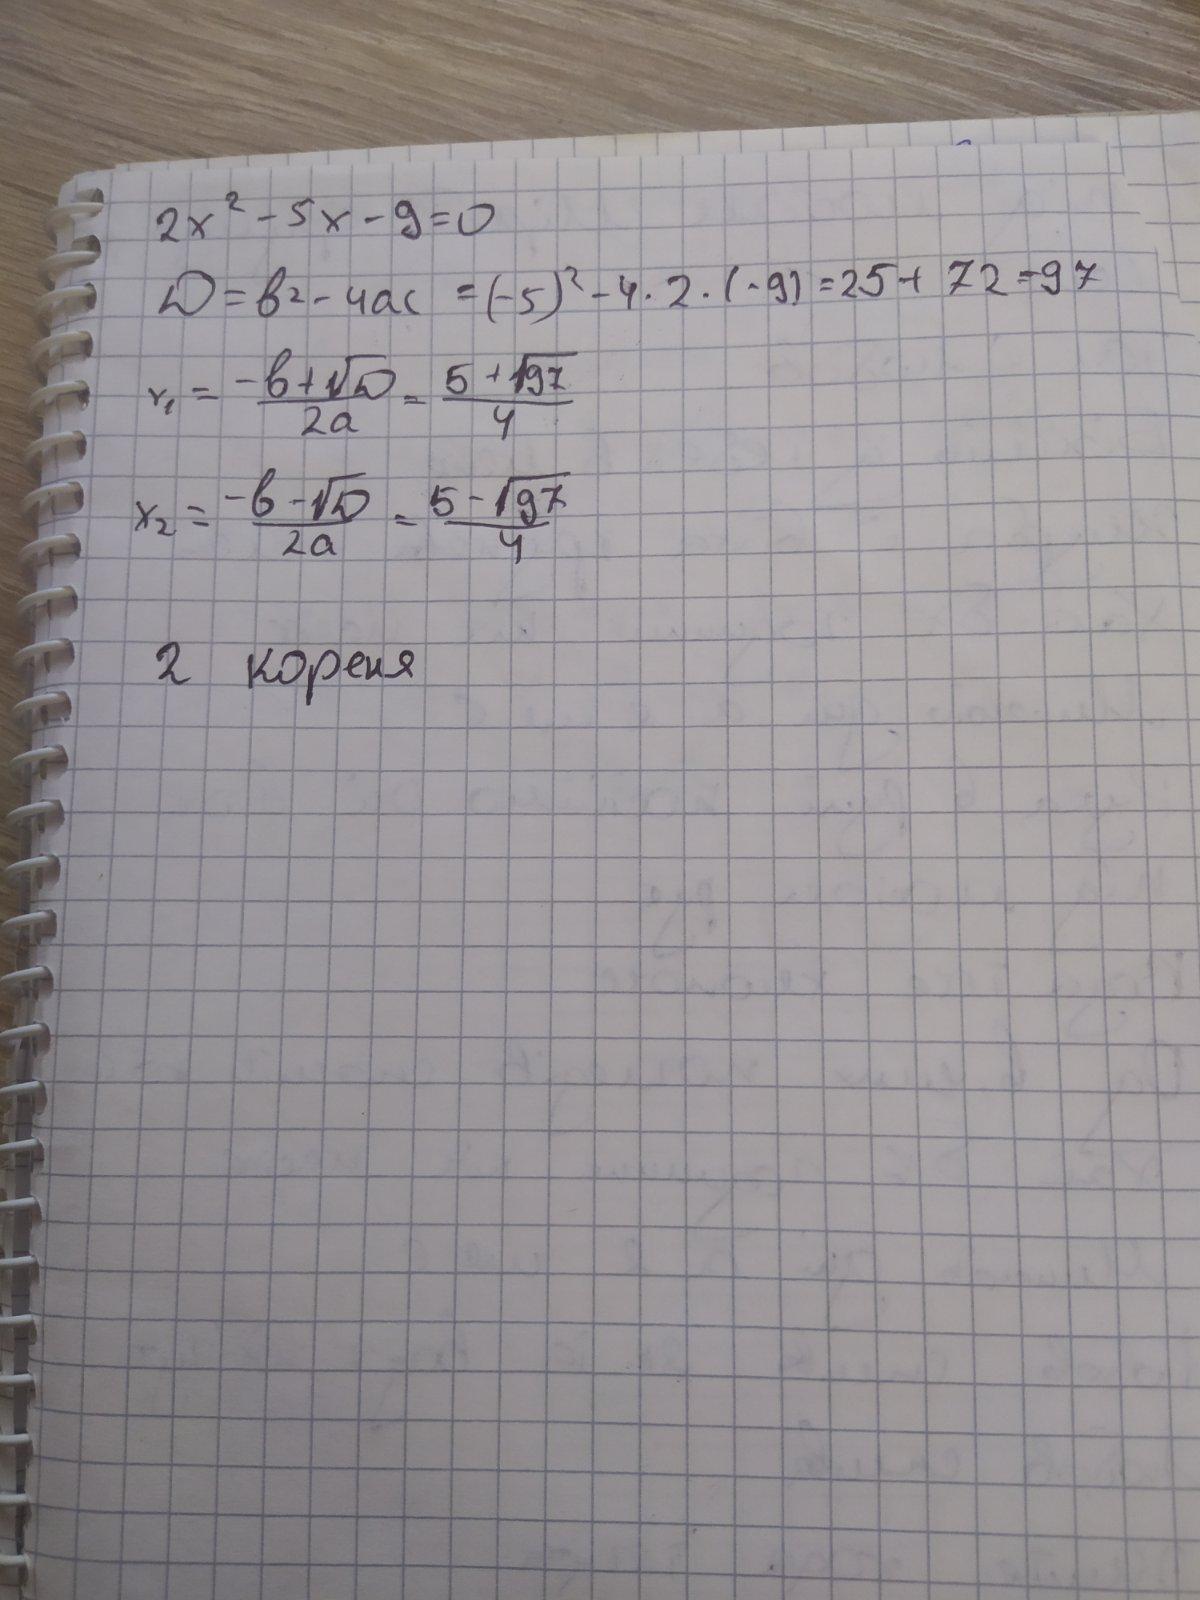 2x² - 5x - 9 = 0
D = в² - 4ac = (-5)² - 4 · 2 · (-9) = 25 + 72 = 97
x₁ = (-в + √D)/2a = (5 + √97)/4
x₂ = (-в - √D)/2a = (5 - √97)/4
2 кореня